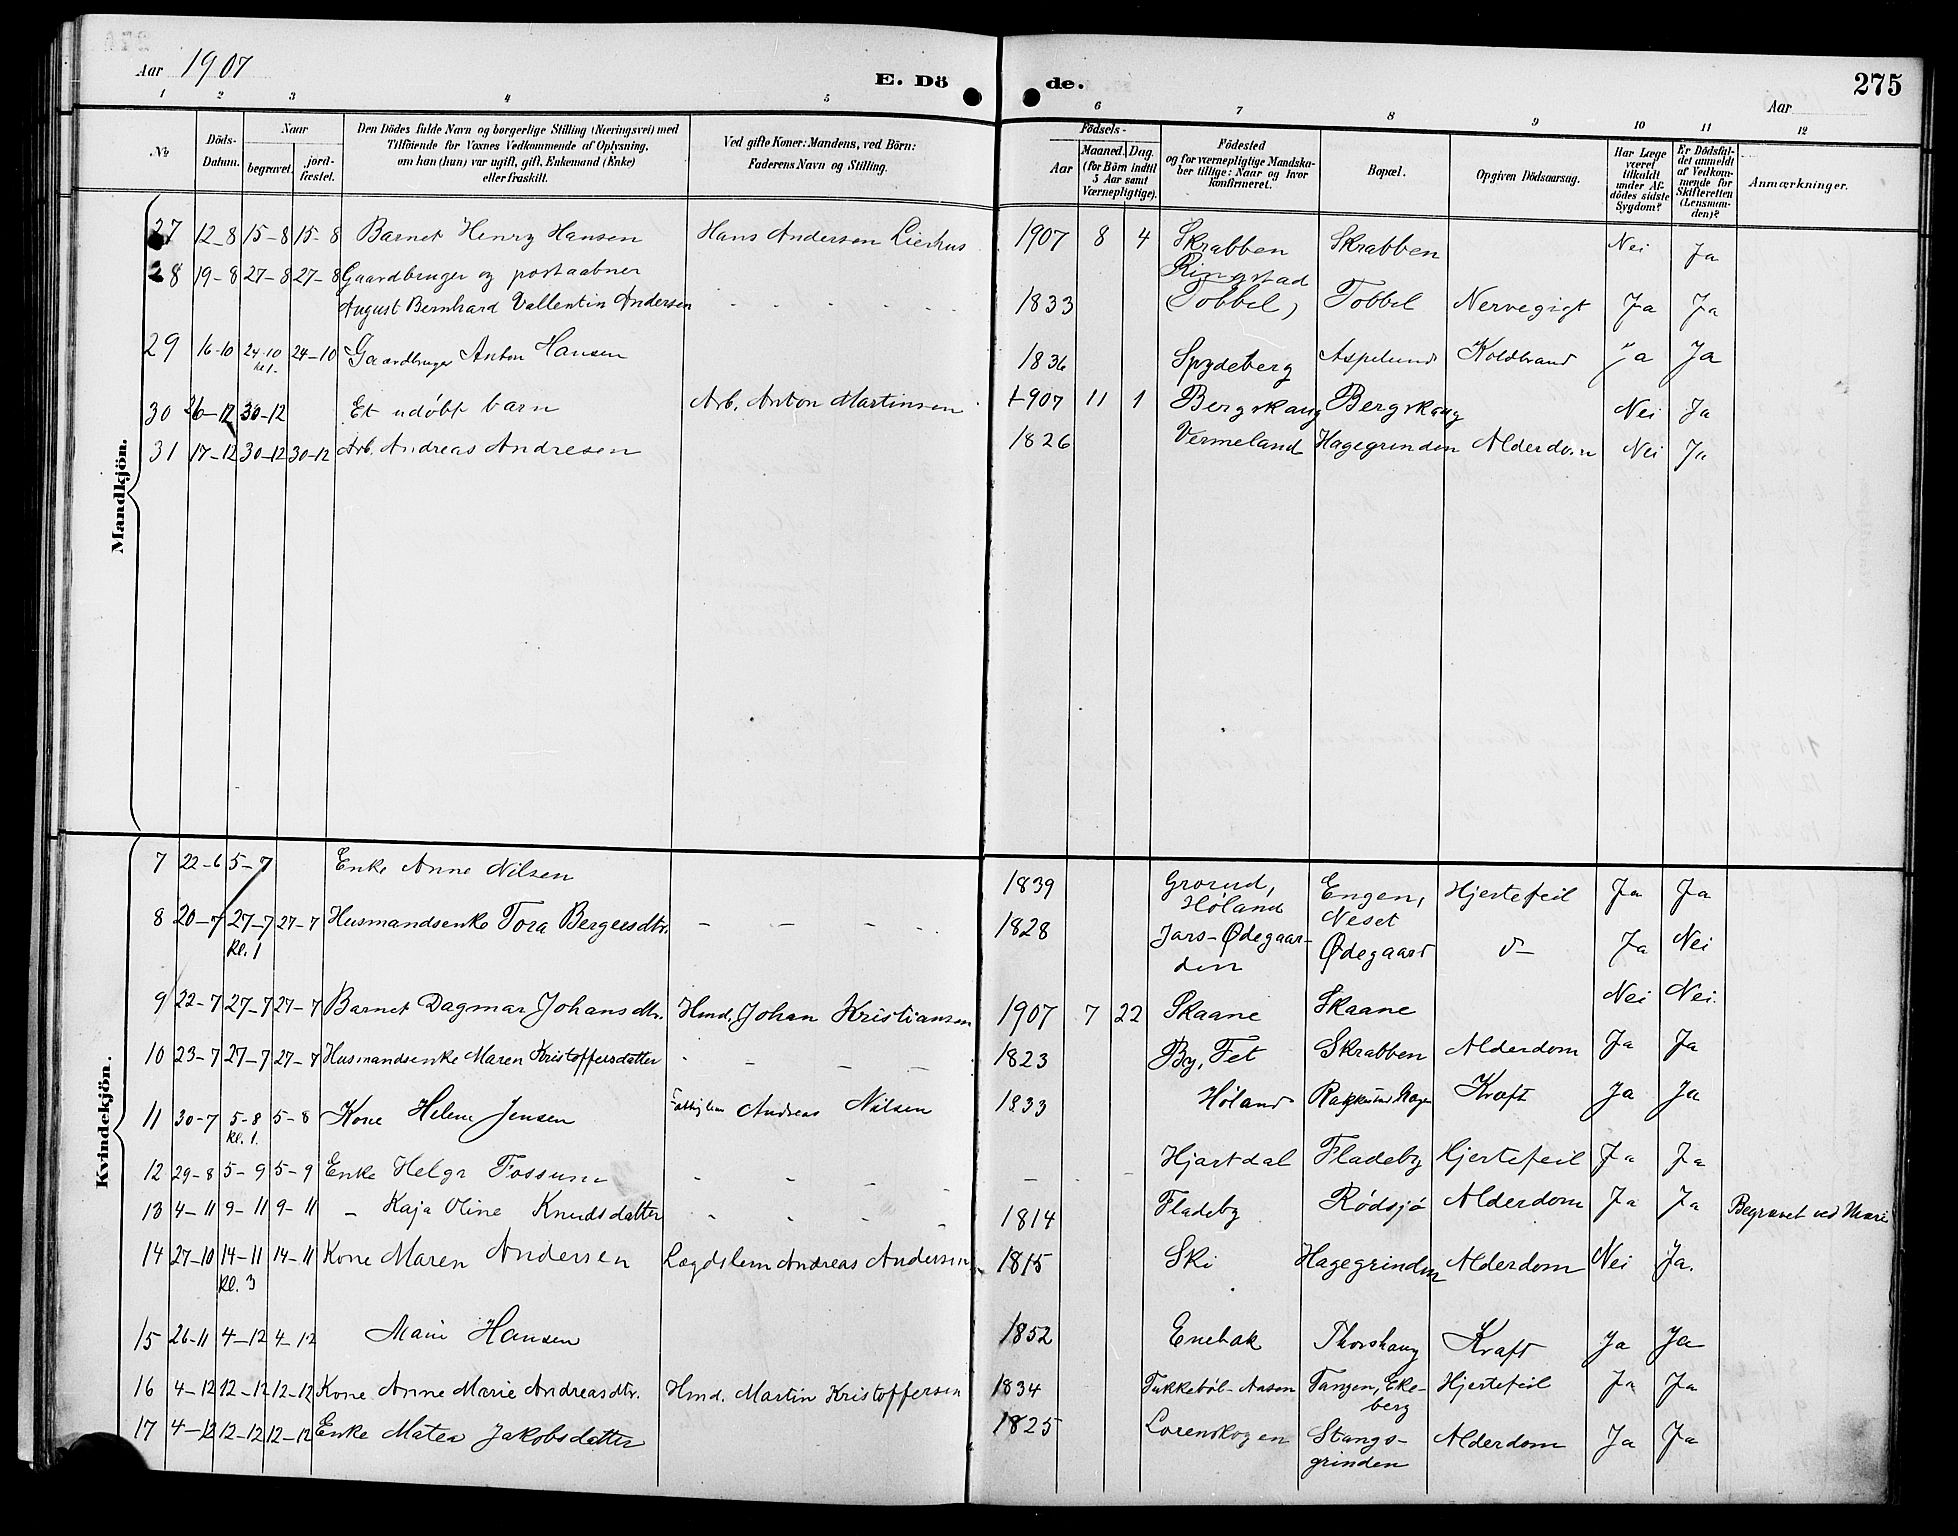 Aar 1907
E. Döde.
Aar
275
1 2 3 4 5 6 7 8 9 10 11 12
No
Döds-Datum.
Naar
begravet.
jord-fæstet.
Den Dödes fulde Navn og borgerlige Stilling (Næringsvei) med
Tilföiende for Voxnes Vedkommende af Oplysning,
om han (hun) var ugift, gift, Enkemand (Enke)
eller fraskilt.
Ved gifte Koner: Mandens, ved Börn:
Faderens Navn og Stilling.
Födsels-
Aar
Maaned. Dag.
(for Börn indtil
5 Aar samt
Værnepligtige).
Födested
og for værnepligtige Mandska-
ber tillige: Naar og hvor
konfirmeret.
Bopæl.
Opgiven Dödsaarsag.
Har Læge
været
tilkaldt
under Af-
dödes sidste
Sygdom?
Er Dödsfal-
det anmeldt
af Vedkom-
mende for
Skifteretten
(Lensman-
den)?
Anmærkninger.
Mandkjön.
27 12-8 15-8 15-8 Barnet Henry Hansen Hans Andersen Lierhus 1907 8 4 Skrabben Skrabben Nei Ja
28 19-8 27-8 27-8 Gaardbruger og postaabner Ringstad
August Bernhard Vallentin Andersen - - - - - 1833 (Tobbel) Tobbel Nervegigt Ja Ja
29 16-10 24-10 24-10 Gaardbruger Anton Hansen 1836 Spydeberg Aspelund Koldbrand Ja Ja
kl 1-
30 26-12 30-12 Et udöbt barn Arb. Anton Martinsen 1907 11 1 Bergskaug Bergskaug Nei Ja
31 17-12 30-12 30-12 Arb. Andreas Andresen 1826 Vermeland Hagegrinden Alderdom Nei Ja
Kvindekjön.
7 22-6 5-7 Enke Anne Nilsen 1839 Grorud, Engen, Hjertefeil Ja Ja
Høland Neset
8 20-7 27-7 27-7 Husmandsenke Tora Bergersdtr. - - - - 1828 Jars-Ødegaar- Ødegaard Ja Nei
kl. 1 den
9 22-7 27-7 27-7 Barnet Dagmar Johansdtr. Hmd. Johan Kristiansen 1907 7 22 Skaane Skaane Nei Nei.
10 23-7 27-7 27-7 Husmandsenke Maren Kristoffersdatter - - - - 1823 By, Fet Skrabben Alderdom Ja Ja
11 30-7 5-8 5-8 Kone Helene Jensen Andreas Nilsen 1833 Høland Kræft Ja Ja
kl. 1.
12 29-8 5-9 5-9 Enke Helga Fossum - - - - - - - Hjartdal Fladeby Hjertefeil Ja Ja
13 4-11 9-11 9-11 - Kaja Oline Knudsdatter - - - - 1814 Fladeby Rødsjø Alderdom Ja Ja Begravet ved Mari
14 27-10 14-11 14-11 Kone Maren Andersen Lægdslem Andreas Andersen 1815 Ski Hagegrinden Alderdom Nei Ja.
kl. 3
15 26-11 4-12 4-12 Hansen 1852 Enebak Thorshaug Kræft Ja Ja
16 4-12 12-12 12-12 Kone Anne Marie Andreasdtr. Hmd. Martin Kristoffersen 1834 Tukkeböl-Aasen Tangen, Eke- Hjertefeil Ja Ja
berg
17 4-12 12-12 12-12 Enke Matea Jakobsdatter 1825 Lorenskogen Stangs- Alderdom Ja Ja
grinden